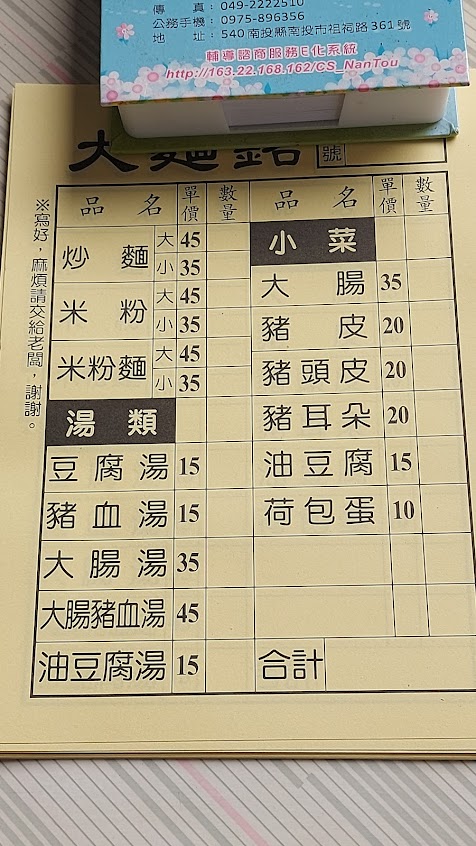 傳 真: 049-2222510
公務手機: 0975-896356
地 址: 540南投縣南投市祖祠路361號
輔導諮商服務E化系統
http://163.22.168.162/CS_NanTou
大麵館
號
※寫好，麻煩請交給老闆，謝謝。
品名 單價 數量
炒麵 大 45
小 35
米粉 大 45
小 35
米粉麵 大 45
小 35
湯類
豆腐湯 15
豬血湯 15
大腸湯 35
大腸豬血湯 45
油豆腐湯 15
品名 單價 數量
小菜
大腸 35
豬皮 20
豬頭皮 20
豬耳朵 20
油豆腐 15
荷包蛋 10
合計